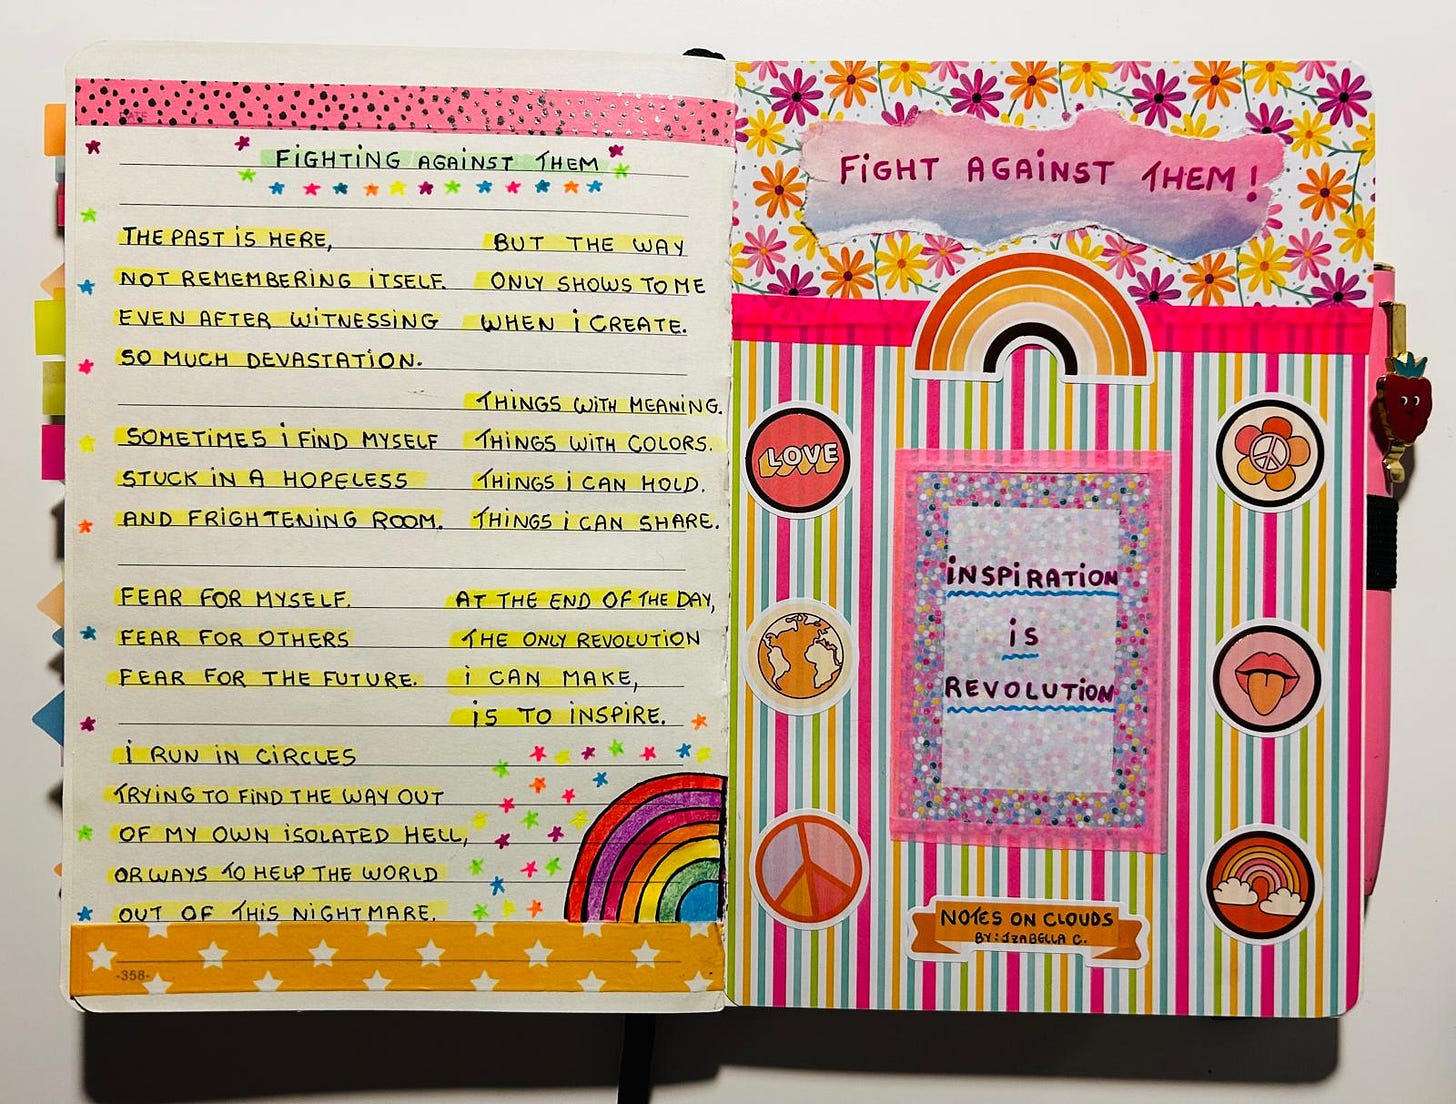 FIGHTING AGAINST THEM
THE PAST IS HERE,
NOT REMEMBERING ITSELF
EVEN AFTER WITNESSING
SO MUCH DEVASTATION.
SOMETIMES I FIND MYSELF
STUCK IN A HOPELESS
AND FRIGHTENING ROOM.
FEAR FOR MYSELF.
FEAR FOR OTHERS
FEAR FOR THE FUTURE.
I RUN IN CIRCLES
TRYING TO FIND THE WAY OUT
OF MY OWN ISOLATED HELL,
OR WAYS TO HELP THE WORLD
OUT OF THIS NIGHTMARE.
BUT THE WAY
ONLY SHOWS TO ME
WHEN I CREATE.
THINGS WITH MEANING.
THINGS WITH COLORS.
THINGS I CAN HOLD.
THINGS I CAN SHARE.
AT THE END OF THE DAY,
THE ONLY REVOLUTION
I CAN MAKE,
IS TO INSPIRE.
-358-
FIGHT AGAINST THEM!
LOVE
INSPIRATION
IS
REVOLUTION
NOTES ON CLOUDS
BY: IZABELLA C.